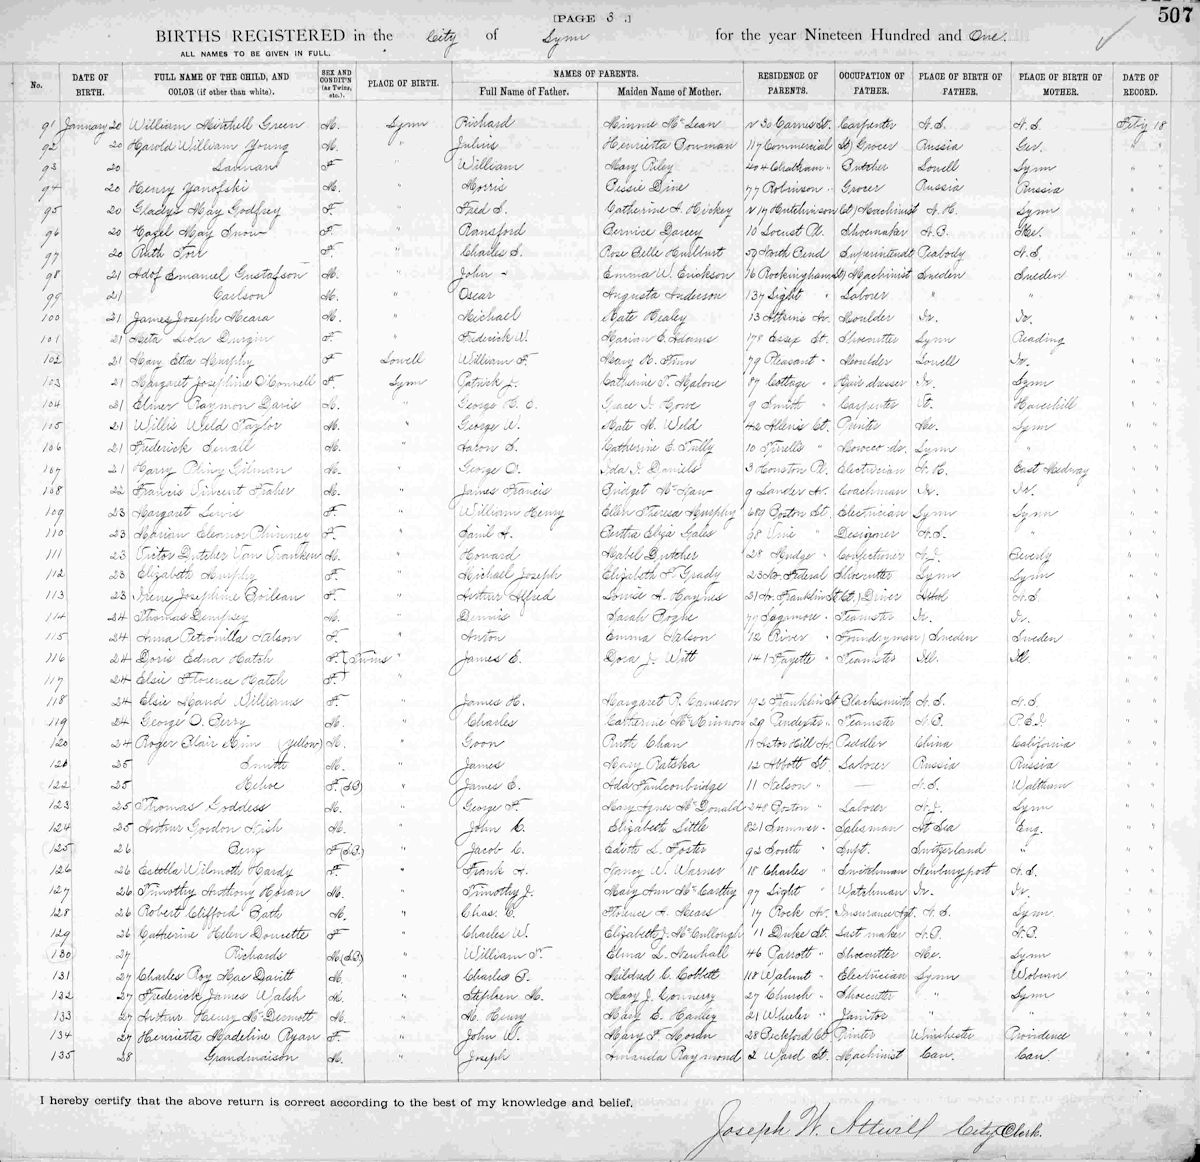 [PAGE 3.]
507
BIRTHS REGISTERED in the City of Lynn for the year Nineteen Hundred and One.
ALL NAMES TO BE GIVEN IN FULL.
No. DATE OF BIRTH. FULL NAME OF THE CHILD, AND COLOR (if other than white). SEX AND CONDIT'N (as Twins, etc.). PLACE OF BIRTH. NAMES OF PARENTS. Full Name of Father. Maiden Name of Mother. RESIDENCE OF PARENTS. OCCUPATION OF FATHER. PLACE OF BIRTH OF FATHER. PLACE OF BIRTH OF MOTHER. DATE OF RECORD.
91 January 20 William Mitchell Green M. Lynn Richard Minnie McLean 30 St. Carpenter N.S. N.S. Feb'y 18
92 20 Harold William Young M. " Julius Henrietta Bowman 117 Commercial St. Grocer Russia Ger. "
93 20 F " William Mary Riley 404 Chatham " Butcher Lowell Lynn "
94 20 Henry Yanofski M. " Morris Bessie Dine 77 Robinson " Grocer Russia Russia "
95 20 Gladys May Godfrey F. " Fred S. Catherine A. Hickey 17 Hutchinson Ct. Machinist N.H. Lynn "
96 20 Hazel May Snow F. " Ransford Bernice Dorcey 10 Locust Pl. Shoemaker N.B. Me. "
97 20 Ruth Torr F. " Charles S. Rose Belle Hulburt 59 North Bend Superintendt Peabody N.S. "
98 21 Adof Emanuel Gustafson M. " John Emma W. Erickson 16 Rockingham St. Machinist Sweden Sweden "
99 21 Carlson M. " Oscar Augusta Anderson 137 Light " Laborer " " "
100 21 James Joseph Meara M. " Michael Kate Healey 13 Atkins Av. Moulder Ir. Ir. "
101 21 Meta Leola Durgin F. " Frederick W. Marian E. Adams 178 Essex St. Shoecutter Lynn Reading "
102 21 Mary Etta Murphy F Lowell William F. Mary H. Finn 79 Pleasant " Moulder Lowell Ir. "
103 21 Margaret Josephine O'Connell F. Lynn Patrick J. Catherine T. Malone 87 Cottage " Hair dresser Ir. Lynn "
104 21 Elmer Raymon Davis M. " George H. C. Grace I. Howe 9 Smith " Carpenter Vt. Haverhill "
105 21 Willis Weld Taylor M. " George W. Kate M. Weld 42 Allens Ct. Painter Me. Lynn "
106 21 Frederick Sewall M. " Aaron S. Catherine E. Tully 10 Tirrell's " Morocco dr. Lynn " "
107 21 Harry Pliny Gilman M. " George O. Ida I. Daniels 3 Houston Pl. Electrician N.H. East Medway "
108 22 Francis Vincent Fraher M. " James Francis Bridget 9 Lander Av. Coachman Ir. Ir. "
109 23 Margaret Lewis F. " William Henry Ellen Theresa Murphy 689 Boston St. Electrician Lynn Lynn "
110 23 Marian Eleanor Phinney F. " H. Bertha Eliza Gales 68 Vine " Designer N.S. " "
111 23 Victor Dutcher Van Vranken M. " Howard Mabel Dutcher 28 Mudge " Confectioner N.J. Beverly "
112 23 Elizabeth Murphy F. " Michael Joseph Elizabeth F. Grady 23 No. Federal Shoecutter Lynn Lynn "
113 23 Irene Josephine Boilean F. " Arthur Alfred Louise A. Haynes 21 Av. Franklin St. Ct. Driver N.S. "
114 24 Thomas Dempsey M. " Dennis Sarah Bogue 70 Sagamore " Teamster Ir. Ir. "
115 24 Anna Petronilla Nelson F. " Anton Emma Nelson 72 River " Foundryman Sweden Sweden "
116 24 Doris Edna Hatch F. (Twins " James E. Dora J. Witt 141 Fayette " Teamster Ill. Ill. "
117 24 Elsie Florence Hatch F. "
118 24 Elsie Maud Williams F. " James H. Margaret R. Cameron 192 Franklin St. Blacksmith N.S. N.S. "
119 24 George O. Berry M. " Charles Catherine McKinnon 20 Pendexter " Teamster N.B. P.E.I. "
120 24 Roger Blair Kim (yellow) M. " Goon Ruth Chan 11 Astor Hill Av. Peddler China California "
121 25 Smith M. " James Mary Ratska 12 Abbott St. Laborer Russia Russia "
122 25 F. (SB) " James E. Ada Faulconbridge 11 Nelson " — N.S. Waltham "
123 25 Thomas Goddess M. " George F. Mary Agnes McDonald 248 Boston " Laborer N.J. Lynn "
124 25 Arthur Gordon Nish M. " John C. Elizabeth Little 821 Summer " Salesman At Sea Eng. "
125 26 Berg F (S.B.) " Jacob C. Edith L. Foster 92 South " Supt. Switzerland " "
126 26 Estella Wilmoth Hardy F " Frank A. Nancy W. Warner 18 Charles " Switchman Newburyport N.S. "
127 26 Timothy Anthony Horan M. " Timothy J. Mary Ann McCarthy 97 Light " Watchman Ir. Ir. "
128 26 Robert Clifford Bath M. " Chas. E. Florence A. Mears 17 Rock Av. Insurance Agt. N.S. Lynn "
129 26 Catherine Helen Doucette F " Charles W. Elizabeth J. McCullough 11 Duke St. Last maker N.B. N.B. "
130 27 Richards M (S.B) " William F. Elma L. Newhall 46 Parrott " Shoecutter Me. Lynn "
131 27 Charles Roy MacDavitt M. " Charles P. Mildred C. Corbett 118 Walnut " Electrician Lynn Woburn "
132 27 Frederick James Walsh M. " Stephen M. Mary J. Connery 27 Church " Shoecutter " Lynn "
133 27 Arthur Henry McDermott M. " M. Henry Mary E. Hanley 21 Wheeler " Janitor " " "
134 27 Henrietta Madeline Ryan F. " John W. Mary F. Morin 28 Bickford Ct. Painter Winchester Providence "
135 28 Grandmaison M. " Joseph Amanda Raymond 2 Ward St. Machinist Can. Can. "
I hereby certify that the above return is correct according to the best of my knowledge and belief.
Joseph W. Attwill City Clerk.